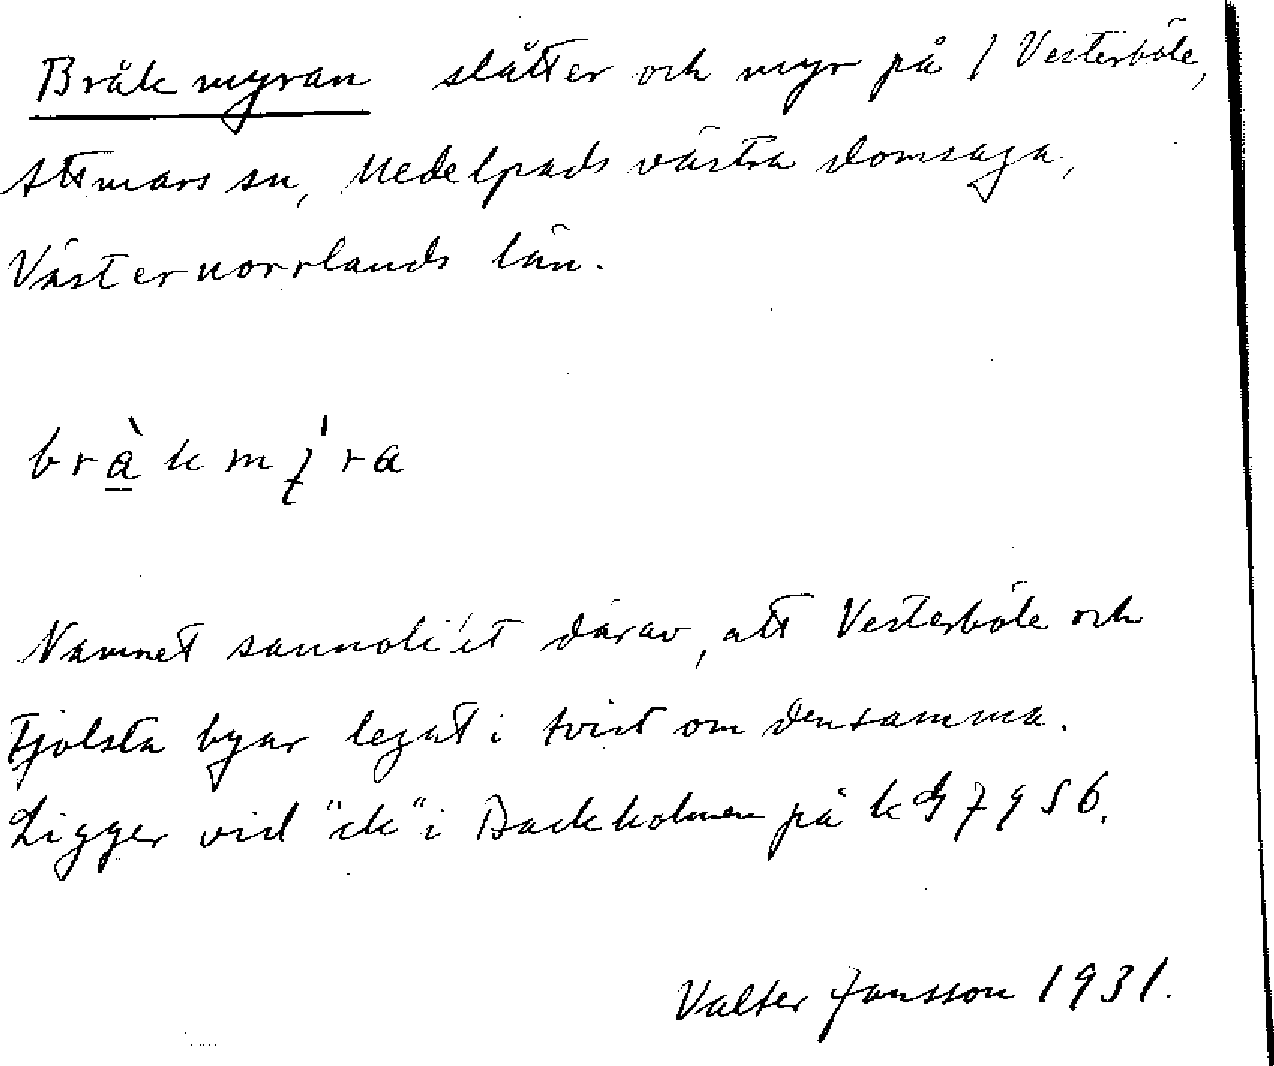 Bråkmyran slåtter och myr på 1 Vesterböle,
Attmars sn, Medelpads västra domsaga,
Västernorrlands län.
Namnet sannolikt därav, att Vesterböle och
Fjolsta byar legat i tvist om densamma.
Ligger vid "ck" i Backholmen på k 7956.
Valter Jansson 1931.